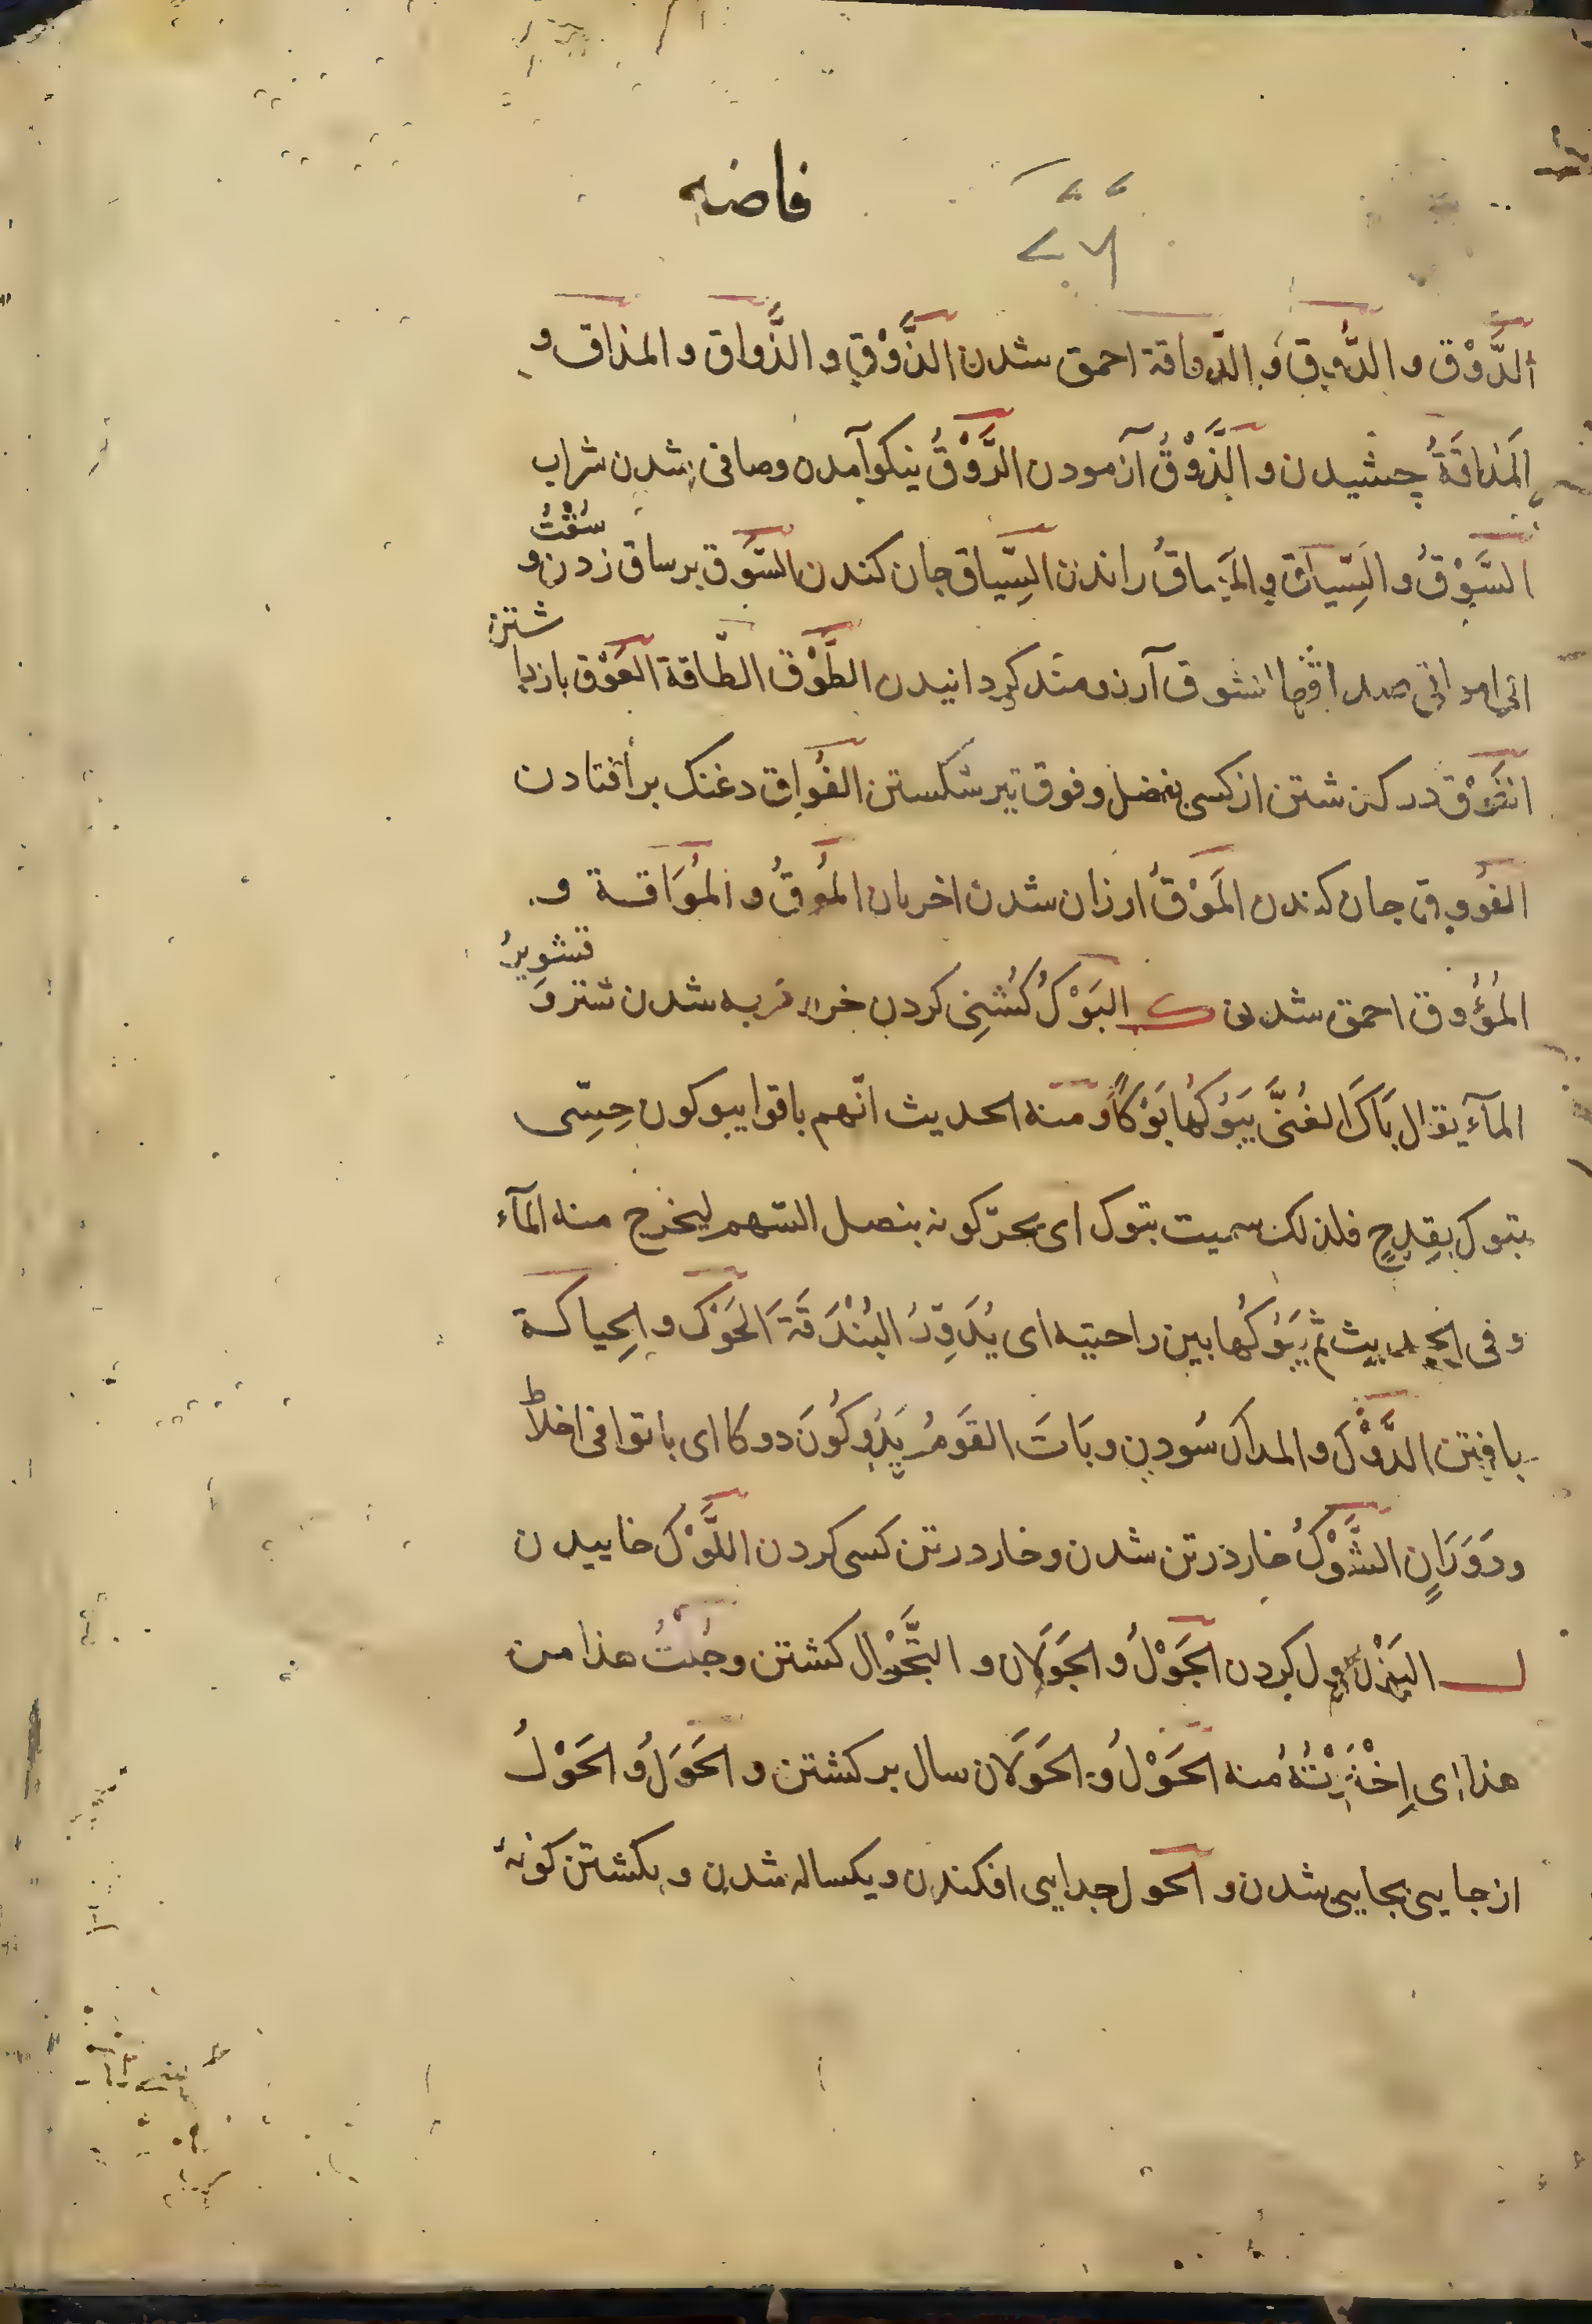 فاضه
الدَّوْق و الدُّوِق وَ الدّواقة احمق شدن الذَّوْق و الذَّواق و المذاق و
المَذاقَةُ چشیدن و الذَّوْقُ آزمودن الرَّوْقُ نیکو آمدن و صافی شدن شراب
السَّوْقُ و السِّیاق و المَساقُ راندن السِّیاق جان کندن السَّوْق بر ساق زدن و سُقْتُ
الی امراتی الشوق آرزومند کردانیدن الطَّوْق الطّاقة العَوْق بازدا شتن
الفَوْق در کذشتن از کسی بفضل و فوق تیر شکستن الفُواق دغنک بر افتادن
الفُووق جان کندن المَوْقُ ارزان شدن اخریان المُوقُ و المُوَاقة و
المُؤُوق احمق شدن ک البَوْكُ کُشنِی کردن خر و فربه شدن شتر وَ تشویرُ
المآءِ یقال بَاكَ العُنَّ یَبُوكُهَا بَوْكًا وَ منه الحدیث انّهم باقوا یبوکون حِسِّی
بتوك بِقِدحٍ فلذلك سمیت بتوك ای یحرّکونه بنصل السّهم لیخرج منه المآء
و فی الحدیث ثم یَبُوكُهَا بین راحتیه ای یُدَوِّدُ البُنْدَقَةَ الحَوْك و الحِیاکة
بافتن الدَّوْكَ و المداك سُودن و بَاتَ القَومُ یَدُوکُونَ دوکا ای باتوا فی اخلاط
و دَوَرَانٍ الشَّوْكُ خار در تن شدن و خار در تن کسی کردن اللَّوْك خاییدن
ل البَوْل بول کردن الجَوْلُ و الجَوَلَان و التَّجْوَال کشتن و جُلْتُ هذا من
هذا ای اِخْتَرْتُهُ منه الحَوْلُ و الحَوَلَان سال بر کشتن و الحَوَلُ و الحَوْلُ
از جایی بجایی شدن و الحَول جدایی افکندن و یکساله شدن و بکشتن کونهٔ